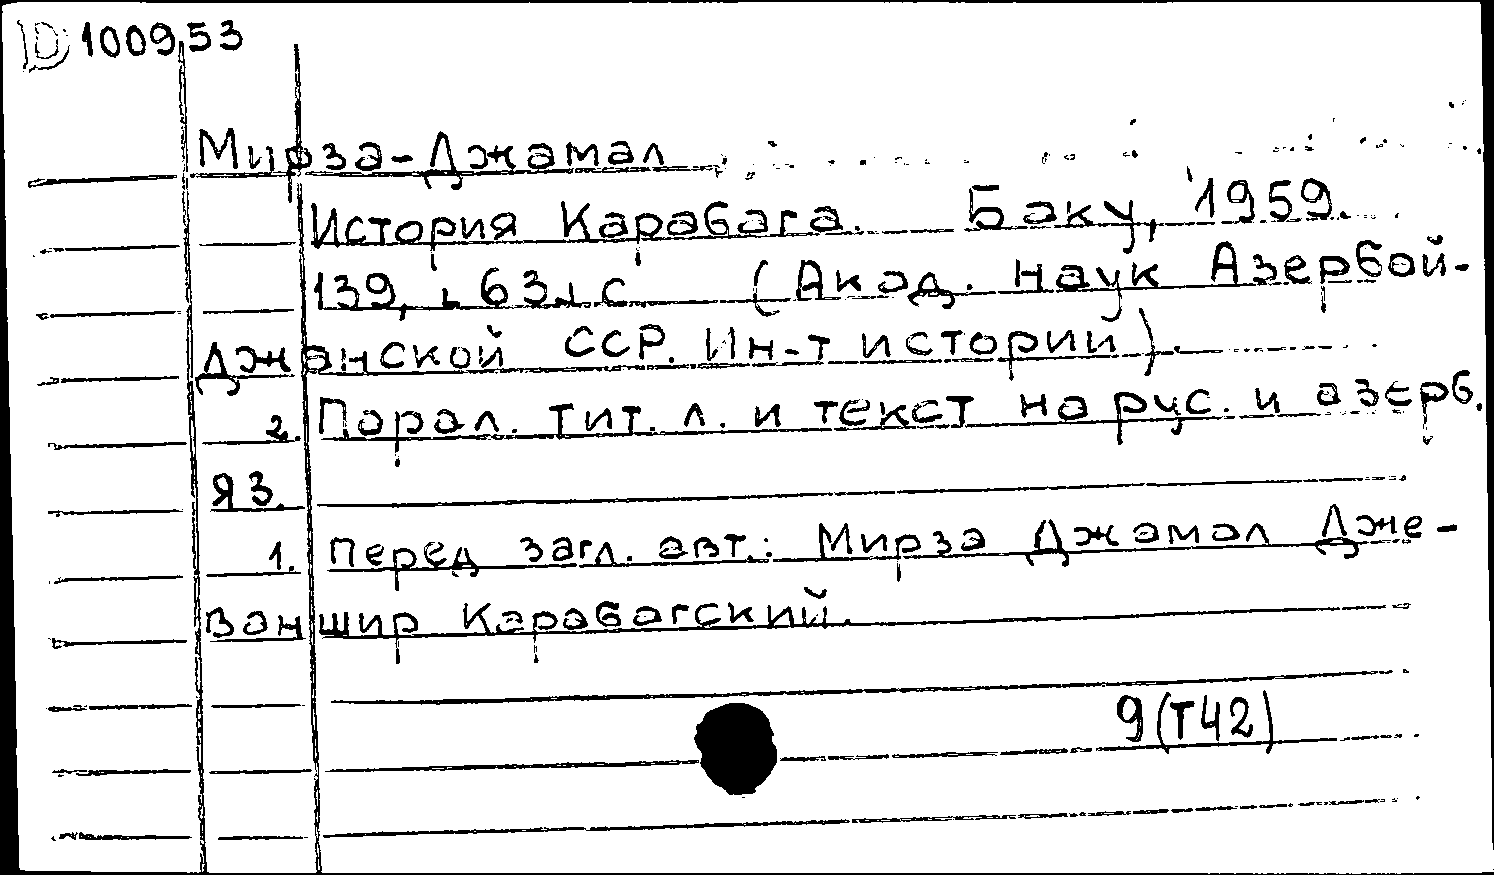 D 100953
Мирза-Джамал
История Карабага. Баку, 1959.
139, 63 с (Акад. наук Азербай-
джанской ССР. Ин-т истории).
2. Парал. тит. л. и текст на рус. и азерб.
яз.
1. Перед загл. авт.: Мирза Джамал Дже-
ваншир Карабагский.
9(Т42)